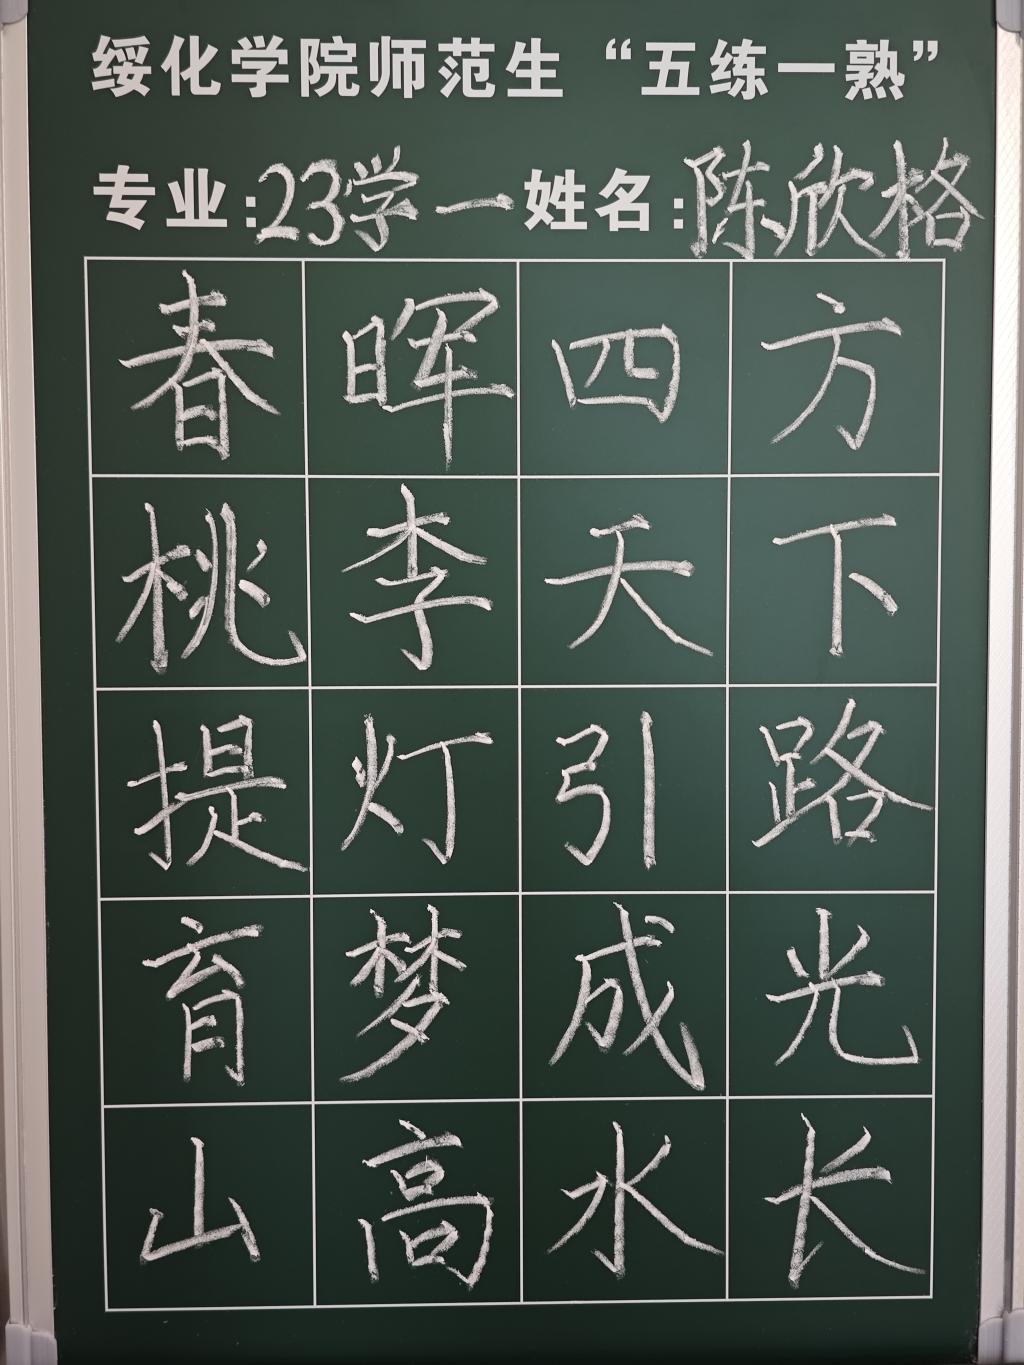 绥化学院师范生“五练一熟”
专业:23学一 姓名:陈欣格
春晖四方
桃李天下
提灯引路
育梦成光
山高水长